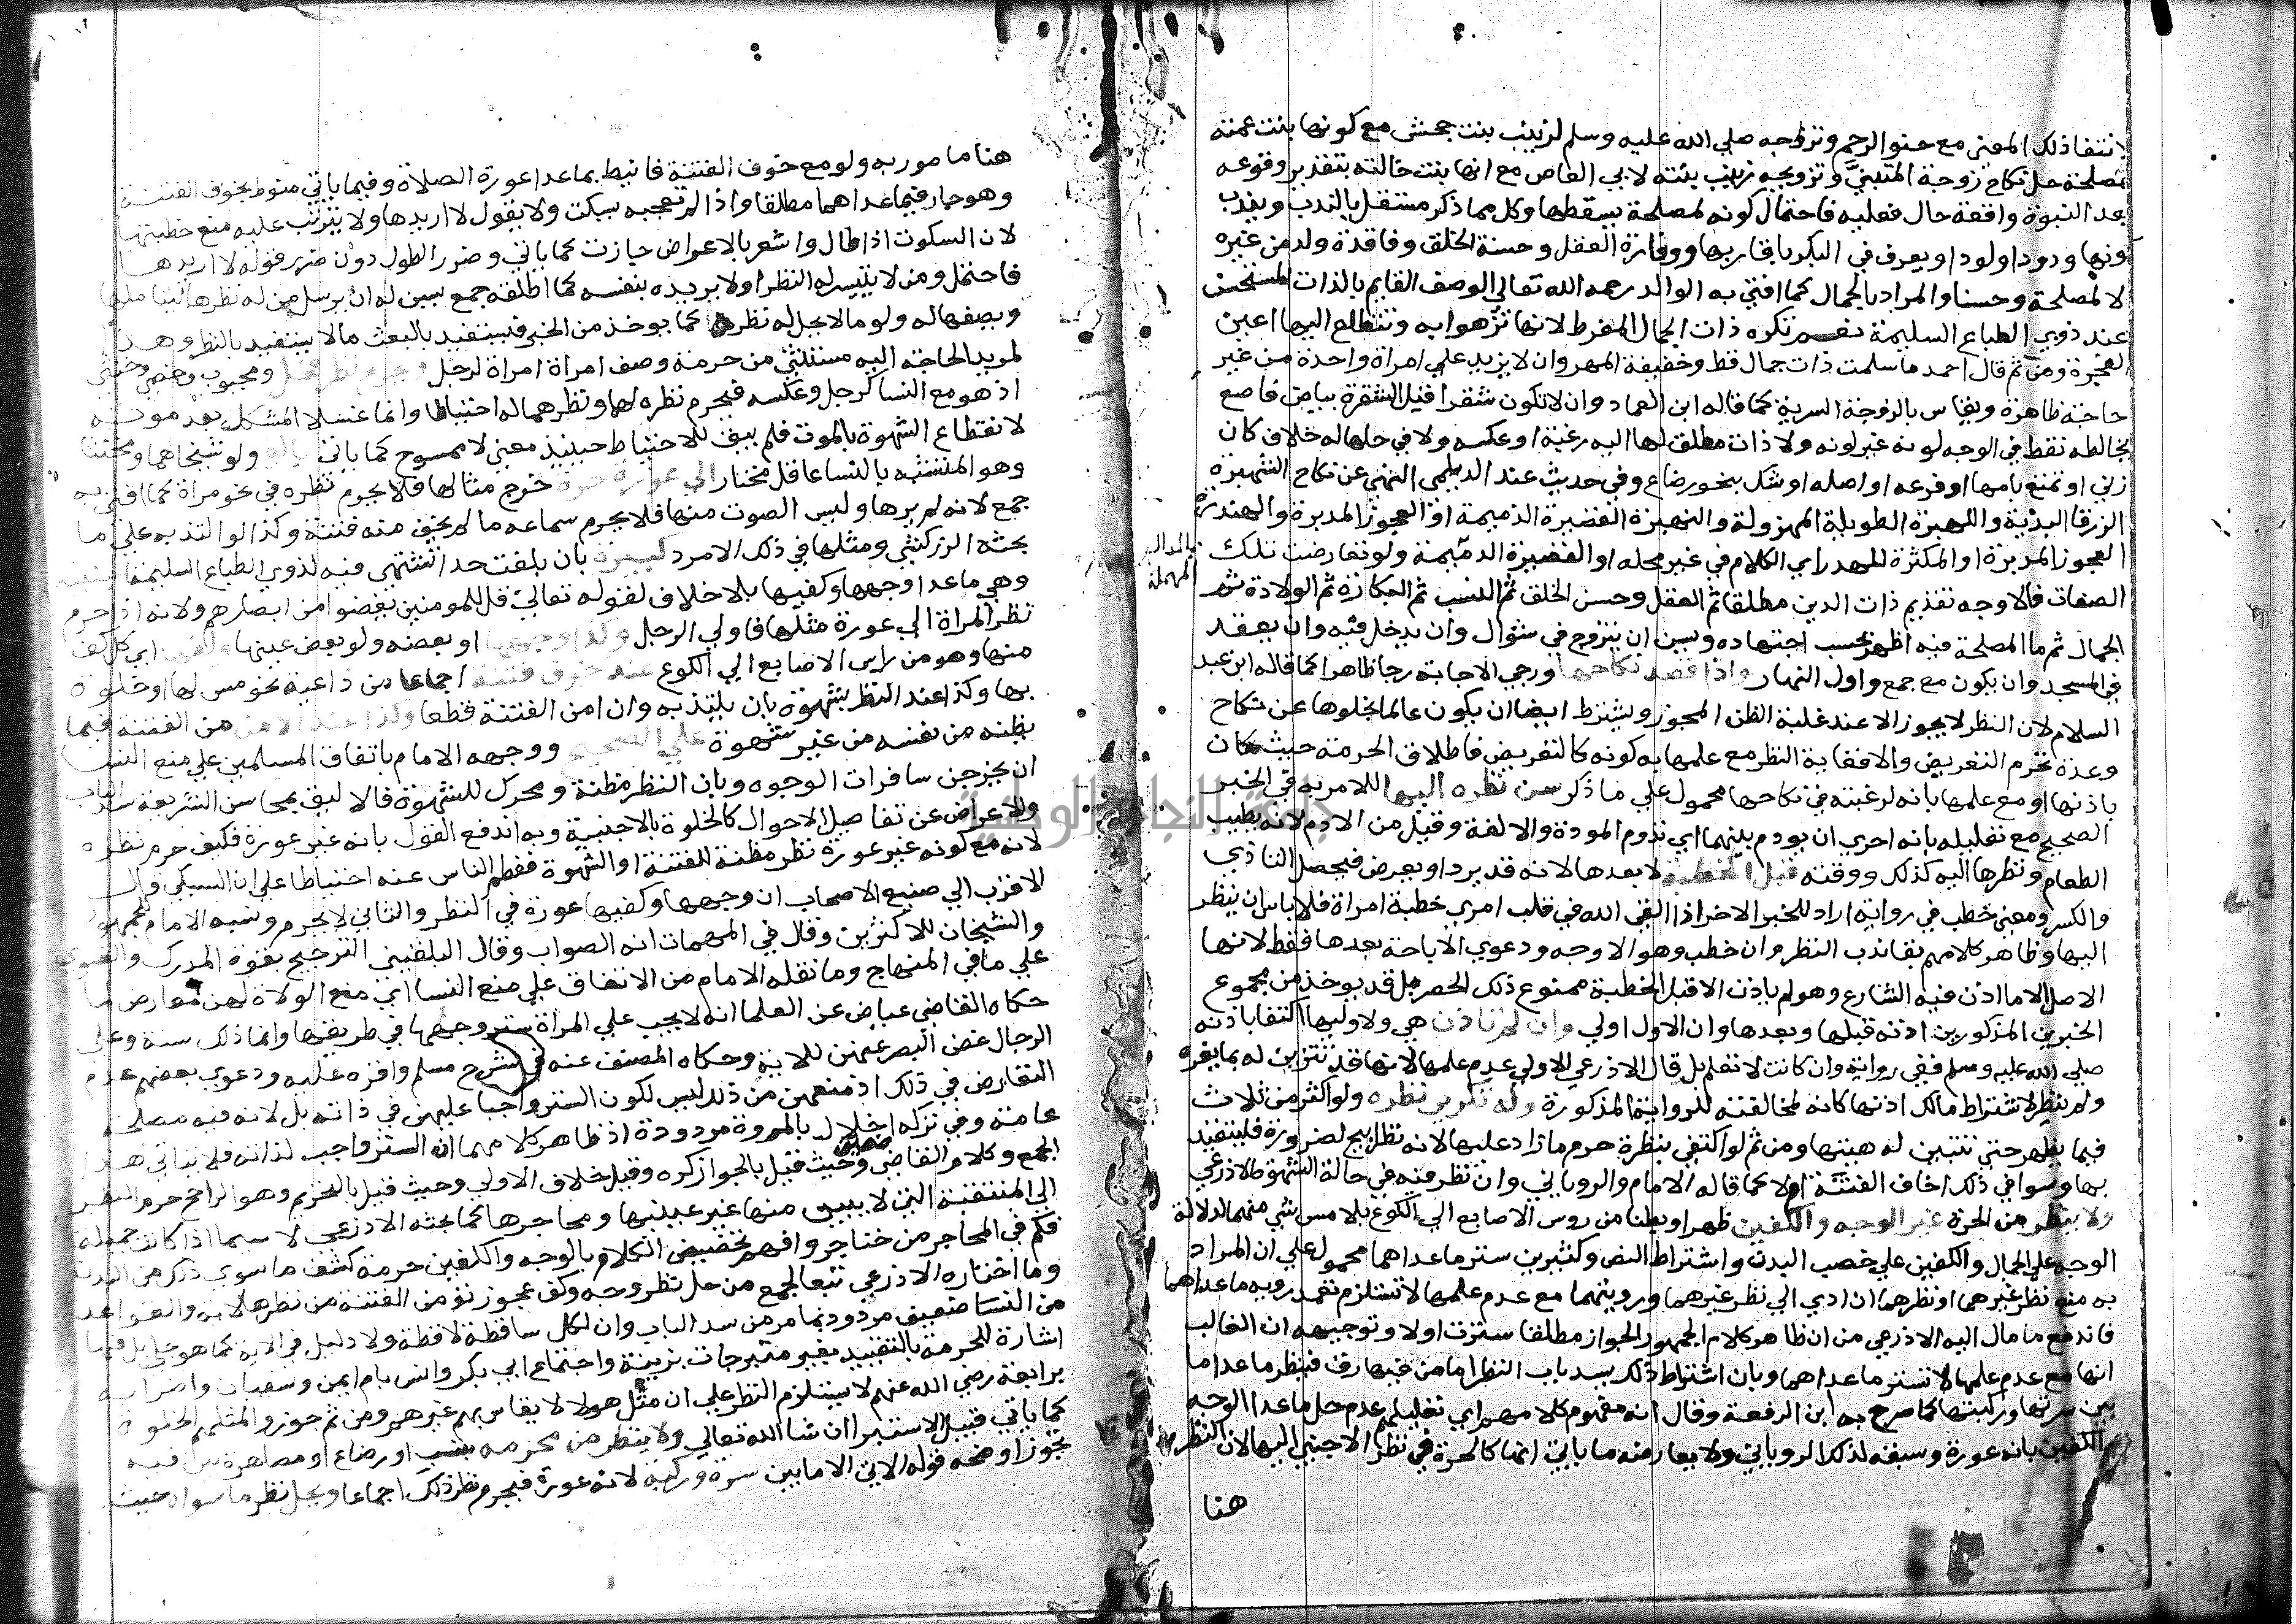 لانتفا ذلك المعنى مع حنو الرحم وتزوجه صلي الله عليه وسلم لزينب بنت جحش مع كونها بنت عمته
لمصلحة حل نكاح زوجة المتبنيَّ وتزويجه زينب بنته لابي العاص مع انها بنت خالته بتقدير وقوعه
بعد النبوة واقعة حال فعليه فاحتمال كونه لمصلحة يسقطها وكل مما ذكر مستقل بالندب ويندب
كونها ودودا ولودا ويعرف في البكر باقاربها ووفارة العقل وحسنة الخلق وفاقدة ولد من غيره
لا لمصلحة وحسنا والمراد بالجمال كما افتي به الوالد رحمه الله تعالي الوصف القايم بالذات المستحسن
عند ذوي الطباع السليمة نعم تكره ذات الجمال المفرط لانها تزهوا به وتتطلع اليها اعين
الفجرة ومن ثم قال احمد ما سلمت ذات جمال قط وخفيفة المهر وان لا يزيد علي امراة واحدة من غير
حاجة ظاهرة ويقاس بالزوجة السرية كما قاله ابن العماد وان لا تكون شقرا قيل الشقرة بياض ناصع
يخالطه نقط في الوجه لونه غير لونه ولا ذات مطلق لها اليه رغبة او عكسه ولا في حلها له خلاف كان
زني او تمتع بامها او فرعه او اصله او شك بنحو رضاع وفي حديث عند الديلمي النهي عن نكاح الشهبرة
الزرقا البذية واللهبرة الطويلة المهزولة والنهبرة القصيرة الذميمة او العجوز المدبرة والهندرة
العجوز المدبرة او المكثرة للهدر اي الكلام في غير محله او القصيرة الدميمة ولو تعارضت تلك
بالدال المهملة
الصفات فالاوجه تقديم ذات الدين مطلقا ثم العقل وحسن الخلق ثم النسب ثم البكارة ثم الولادة ثم
الجمال ثم ما المصلحة فيه اظهر بحسب اجتهاده ويسن ان يتزوج في شوال وان يدخل فيه وان يعقد
في المسجد وان يكون مع جمع واول النهار واذا قصد نكاحها ورجي الاجابة رجا ظاهرا كما قاله ابن عبد
السلام لان النظر لا يجوز الا عند غلبة الظن المجوز ويشترط ايضا ان يكون عالما بخلوها عن نكاح
وعدة تحرم التعريض والا فغاية النظر مع علمها به كونه كالتعريض فاطلاق الحرمة حيث كان
باذنها او مع علمها بانه لرغبته في نكاحها محمول علي ما ذكر سن نظره اليها للامر به في الخبر
الصحيح مع تعليله بانه احري ان يودم بينهما اي تدوم المودة والالفة وقيل من الادم لانه يطيب
الطعام ونظرها اليه كذلك ووقته قبل الخطبة لا بعدها لانه قد يرد او يعرض فيحصل التاذي
والكسر ومعنى خطب في رواية اراد للخبر الاخر اذا القي الله في قلب امري خطبة امراة فلا باس ان ينظر
اليها وظاهر كلامهم بقا ندب النظر وان خطب وهو الاوجه ودعوي الاباحة بعدها فقط لانها
الاصل الا ما اذن فيه الشارع وهو لم ياذن الا قبل الخطبة ممنوع ذلك الحصر بل قد يوخذ من مجموع
الخبرين المذكورين اذنه قبلها وبعدها وان الاول اولي وان لم تاذن هي ولا وليها اكتفا باذنه
صلي الله عليه وسلم ففي رواية وان كانت لا تعلم بل قال الاذرعي الاولي عدم علمها لانها قد تتزين له بما يغره
ولم ينظر لاشتراط مالك اذنها كانه لمخالفته للرواية المذكورة وله تكرير نظره ولو اكثر من ثلاث
فيما يظهر حتي تتبين له هيئتها ومن ثم لو اكتفي بنظرة حرم ما زاد عليها لانه نظر ابيح لضرورة فليتقيد
بها وسوا في ذلك اخاف الفتنة ام لا كما قاله الامام والروياني وان نظر فيه في حالة الشهوة للاذرعي
ولا ينظر من الحرة غير الوجه والكفين ظهرا وبطنا من روس الاصابع الي الكوع بلا مس شي منهما لدلالة
الوجه علي الجمال والكفين علي خصب البدن واشتراط النص وكثيرين ستر ما عداهما محمول علي ان المراد
به منع نظر غيرهما او نظرهما ان ادي الي نظر غيرهما ورويتهما مع عدم علمها لا تستلزم تعمد روية ما عداهما
فاندفع ما مال اليه الاذرعي من ان ظاهر كلام الجمهور الجواز مطلقا سترت اولا وتوجيهه ان الغالب
انها مع عدم علمها لا تستر ما عداهما وبان اشتراط ذلك يسد باب النظر اما من فيها رق فينظر ما عدا ما
بين سرتها وركبتها كما صرح به ابن الرفعة وقال انه مفهوم كلامهم اي تعليلهم عدم حل ما عدا الوجه
والكفين بانه عورة وسبقه لذلك الروياني ولا يعارضه ما ياتي انها كالحرة في نظر الاجنبي اليها لان النظر
هنا
هنا مامور به ولو مع خوف الفتنة فانيط بما عدا عورة الصلاة وفيما ياتي منوط بخوف الفتنة
وهو جار فيما عداهما مطلقا واذا لم تعجبه سكت ولا يقول لا اريدها ولا يترتب عليه منع خطبتها
لان السكوت اذا طال واشعر بالاعراض جازت كما ياتي وضرر الطول دون ضرر قوله لا اريدها
فاحتمل ومن لا يتيسر له النظر او لا يريده بنفسه كما اطلقه جمع يسن له ان يرسل من له نظرها ليتاملها
ويصفها له ولو ما لا يحل له نظره كما يوخذ من الخبر فيستفيد بالبعث ما لا يستفيد بالنظر وهذا
لمزيد الحاجة اليه مستثني من حرمة وصف امراة امراة لرجل ويحرم نظر فحل ومجبوب وخصي وخنثي
اذ هو مع النسا كرجل وعكسه فيحرم نظره لها ونظرهما له احتياطا وانما غسلا المشكل بعد موته
لانقطاع الشهوة بالموت فلم يبق للاحتياط حينيذ معني لا ممسوح كما ياتي بالغ ولو شيخا هما ومخنثا
وهو المتشبه بالنسا عاقل مختار الي عورة حرة خرج مثالها فلا يحرم نظره في نحو مراة كما افتي به
جمع لانه لم يرها وليس الصوت منها فلا يحرم سماعه ما لم يخف منه فتنة وكذا لو التذ به علي ما
بحثه الزركشي ومثلها في ذلك الامرد كبيرة بان بلغت حدا تشتهي فيه لذوي الطباع السليمة
وهي ما عدا وجهها وكفيها بلا خلاف لقوله تعالي قل للمومنين يغضوا من ابصارهم ولانه اذا حرم
نظر المراة الي عورة مثلها فاولي الرجل وكذا وجهها او بعضه ولو بعض عينها وكفها اي كل كف
منها وهو من راس الاصابع الي الكوع عند خوف فتنة اجماعا من داعية نحو مس لها او خلوة
بها وكذا عند النظر بشهوة بان يلتذ به وان امن الفتنة قطعا وكذا عند الامن من الفتنة فيما
يظنه من نفسه من غير شهوة علي الصحيح ووجهه الامام باتفاق المسلمين علي منع النسا
ان يخرجن سافرات الوجوه وبان النظر مظنة ومحرك للشهوة فالاليق بمحاسن الشريعة سد الباب
والاعراض عن تفاصيل الاحوال كالخلوة بالاجنبية وبه اندفع القول بانه غير عورة فكيف حرم نظره
لانه مع كونه غير عورة نظر مظنة للفتنة او الشهوة ففطم الناس عنه احتياطا علي ان السبكي قال
الاقرب الي صنيع الاصحاب ان وجهها وكفيها عورة في النظر والثاني لا يحرم ونسبه الامام للجمهور
والشيخان للاكثرين وقال في المهمات انه الصواب وقال البلقيني الترجيح بقوة المدرك والفتوي
علي ما في المنهاج وما نقله الامام من الاتفاق علي منع النسا اي منع الولاة لهن معارض بما
حكاه القاضي عياض عن العلما انه لا يجب علي المراة ستر وجهها في طريقها وانما ذلك سنة وعلي
الرجال غض البصر عنهن للاية وحكاه المصنف عنه في شرح مسلم واقره عليه ودعوي بعضهم عدم
التعارض في ذلك اذ منعهن من ذلك ليس لكون الستر واجبا عليهن في ذاته بل لانه فيه مصلحة
عامة وفي تركه اخلال بالمروة مردودة اذ ظاهر كلامهما ان الستر واجب لذاته فلا يتاتي هذا
الجمع وكلام القاضي ضعيف وحيث قيل بالجواز كره وقيل خلاف الاولي وحيث قيل بالتحريم وهو الراجح حرم النظر
الي المنتقبة التي لا يبين منها غير عينيها ومحاجرها كما بحثه الاذرعي لا سيما اذا كانت جميلة
فكم في المحاجر من خناجر وافهم تخصيص الكلام بالوجه والكفين حرمة كشف ما سوي ذلك من البدن
وما اختاره الاذرعي تبعا لجمع من حل نظر وجه وكف عجوز تؤمن الفتنة من نظرها لاية والقواعد
من النسا ضعيف مردود بما مر من سد الباب وان لكل ساقطة لاقطة ولا دليل في الاية كما هو جلي بل فيها
اشارة للحرمة بالتقييد بغير متبرجات بزينة واجتماع ابي بكر وانس بام ايمن وسفيان واضرابه
برابعة رضي الله عنهم لا يستلزم النظر علي ان مثل هولا لا يقاس بهم غيرهم ومن ثم جوزوا لمثلهم الخلوة
كما ياتي قبيل الاستبرا ان شا الله تعالي ولا ينظر من محرمه بنسب او رضاع او مصاهرة
تجوز اوضحه قوله الاتي الا ما بين سرة وركبة لانه عورة فيحرم نظر ذلك اجماعا ويحل نظر ما سواه حيث